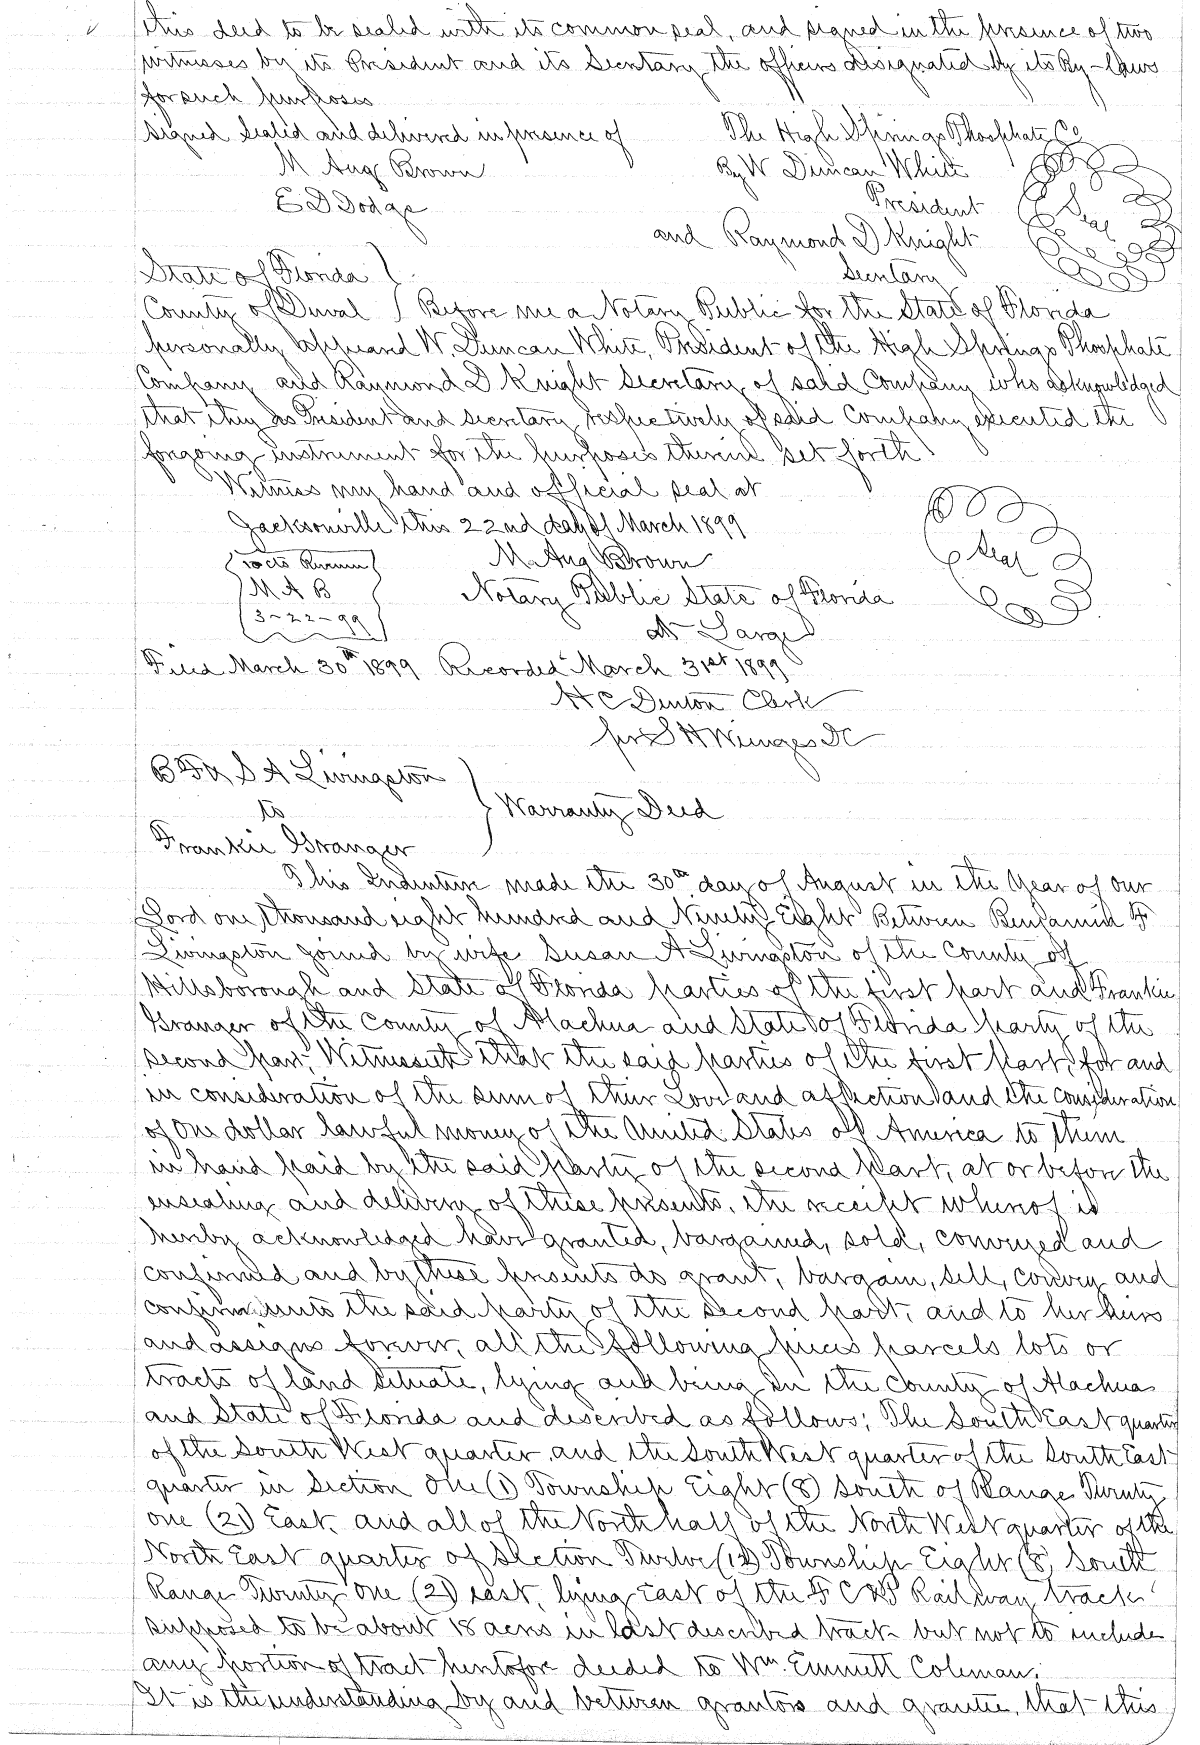 this deed to be sealed with its common seal, and signed in the presence of two
witnesses by its President and its Secretary the officers designated by its By-laws
for such purposes
Signed Sealed and delivered in presence of The High Springs Phosphate Co
M Aug Brown By W Duncan White
E D Dodge President
Seal
and Raymond D Knight
Secretary
State of Florida
County of Duval Before me a Notary Public for the State of Florida
personally appeared W. Duncan White, President of the High Springs Phosphate
Company and Raymond D Knight Secretary of said Company who acknowledged
that they as President and Secretary respectively of said Company executed the
forgoing instrument for the purposes therein set forth
Witness my hand and official seal at
Jacksonville this 22nd day of March 1899
Seal
M. Aug Brown
M A B
3-22-99
Notary Public State of Florida
at Large
Filed March 30th 1899 Recorded March 31st 1899
H C Denton Clerk
per S H Wienges DC
B F & S A Livingston
to Warranty Deed
Frankie Granger
This Indenture made the 30th day of August in the Year of our
Lord one thousand eight hundred and Ninety Eight Between Benjamin F
Livingston joined by wife Susan A Livingston of the County of
Hillsborough and State of Florida parties of the first part and Frankie
Granger of the County of Alachua and State of Florida party of the
second part, Witnesseth that the said parties of the first part, for and
in consideration of the sum of their Love and affection and the consideration
of One dollar lawful money of the United States of America to them
in hand paid by the said party of the second part, at or before the
ensealing and delivery of these presents, the receipt whereof is
hereby acknowledged have granted, bargained, sold, conveyed and
confirmed and by these presents do grant, bargain, sell, convey and
confirm unto the said party of the second part, and to her heirs
and assigns forever, all the following pieces parcels lots or
tracts of land situate, lying and being in the County of Alachua
and State of Florida and described as follows; The South East quarter
of the South West quarter, and the South West quarter of the South East
quarter in Section One (1) Township Eight (8) South of Range Twenty
one (21) East, and all of the North half of the North West quarter of the
North East quarter of Section Twelve (12) Township Eight (8) South
Range Twenty One (21) east, lying East of the F C & P Railway track
supposed to be about 18 acres in last described track but not to include
any portion of tract heretofore deeded to Wm. Emmett Coleman;
It is the understanding by and between grantors and grantee, that this